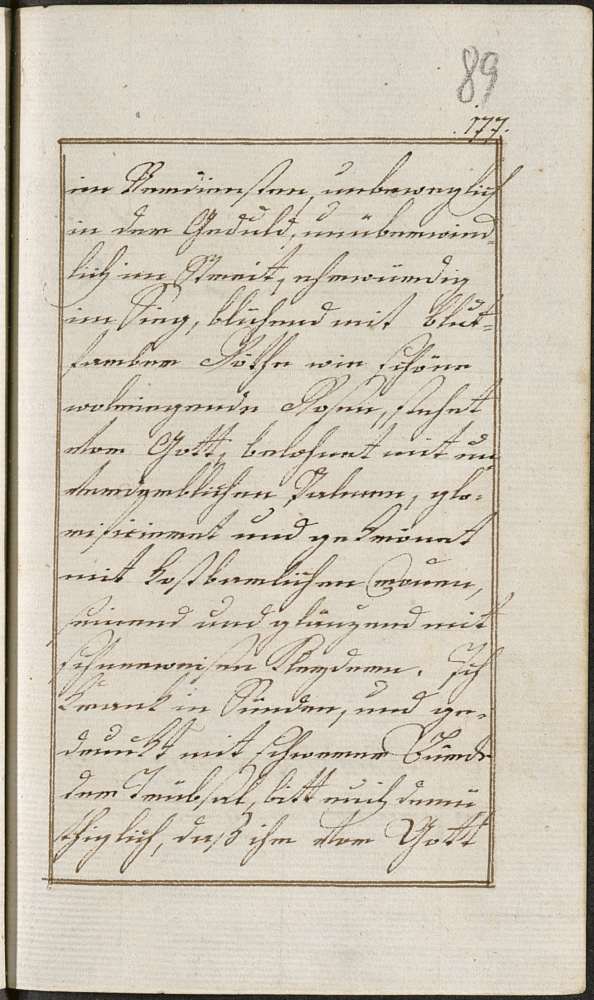 89
177.
im Verdiensten, unbeweglich
in der Geduld, unüberwind
lich im Streit, ehrwürdig
im Sieg, blühend mit blut=
farber Röthe wie schöne
wolriegende Rosen, stehet
vor Gott, belohnet mit un
verdGerblichen Palmen, glo=
rificieret und gekrönet
mit kostbarlichen Cronen,
scheinend und glänzend mit
schneeweisen Kleyderen. Ich
krank in Sünden, und ge=
druckt mit schwerer Bürde
der Trübsal, bitt euch demü
thiglich, daß ihr vor Gott